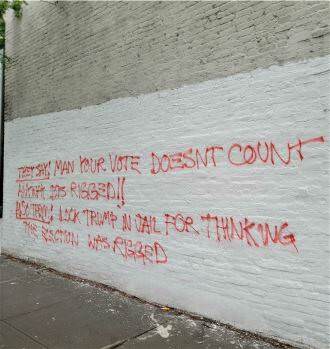 THEY SAY: MAN YOUR VOTE DOESNT COUNT
RIGGED!!
ALSO THEM: LOCK TRUMP IN JAIL FOR THINKING
THE ELECTION WAS RIGGED